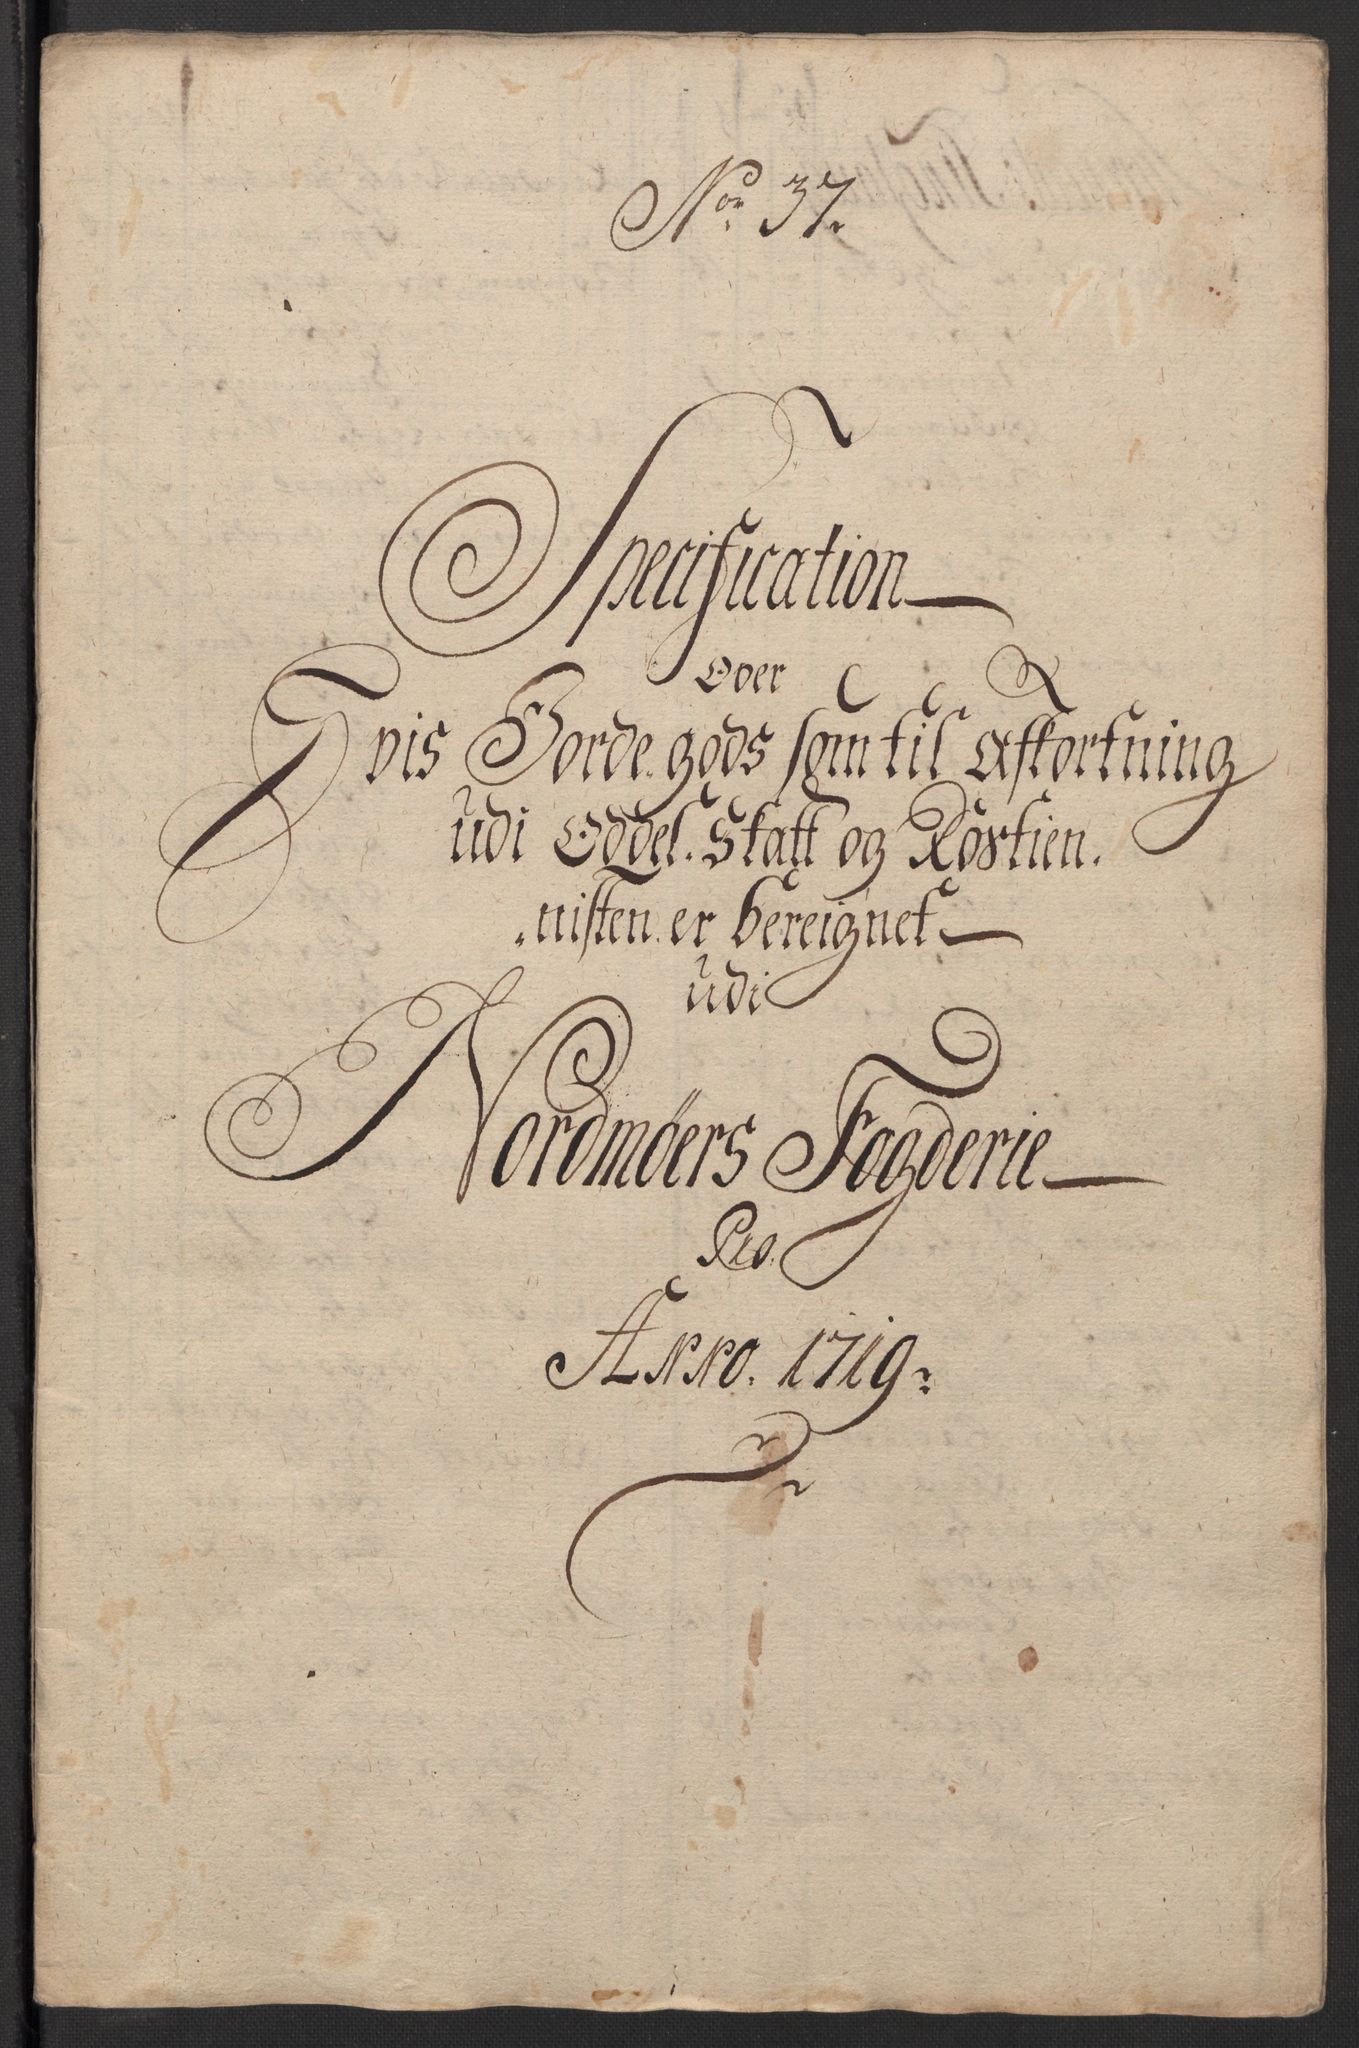 No 37.
Specification
Over
Hvis Jorde gods som til Afkortning
udi Oddel. Skatt og Rostien.
nisten er bereignet
udi
Nordmøers Fogderie
Pro.
Anno. 1719.